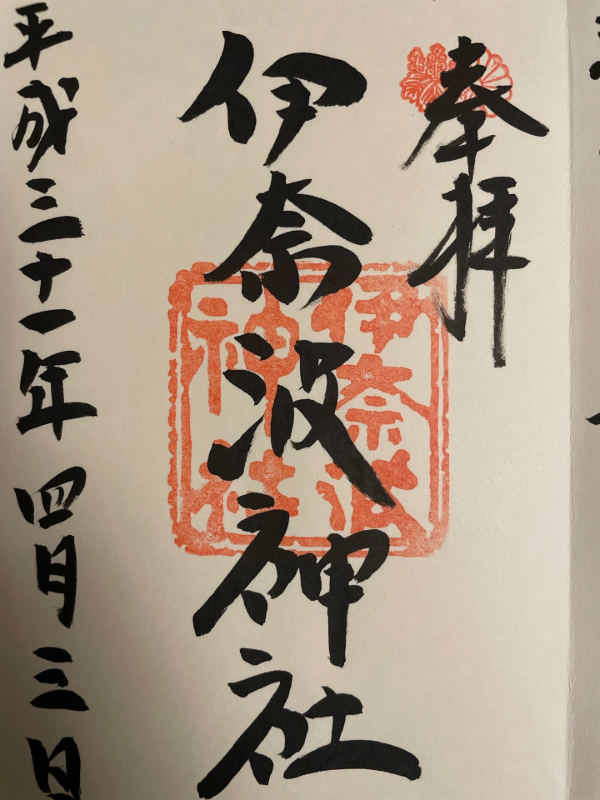 奉拝
伊奈波神社
伊奈波
神社
平成三十一年四月三日